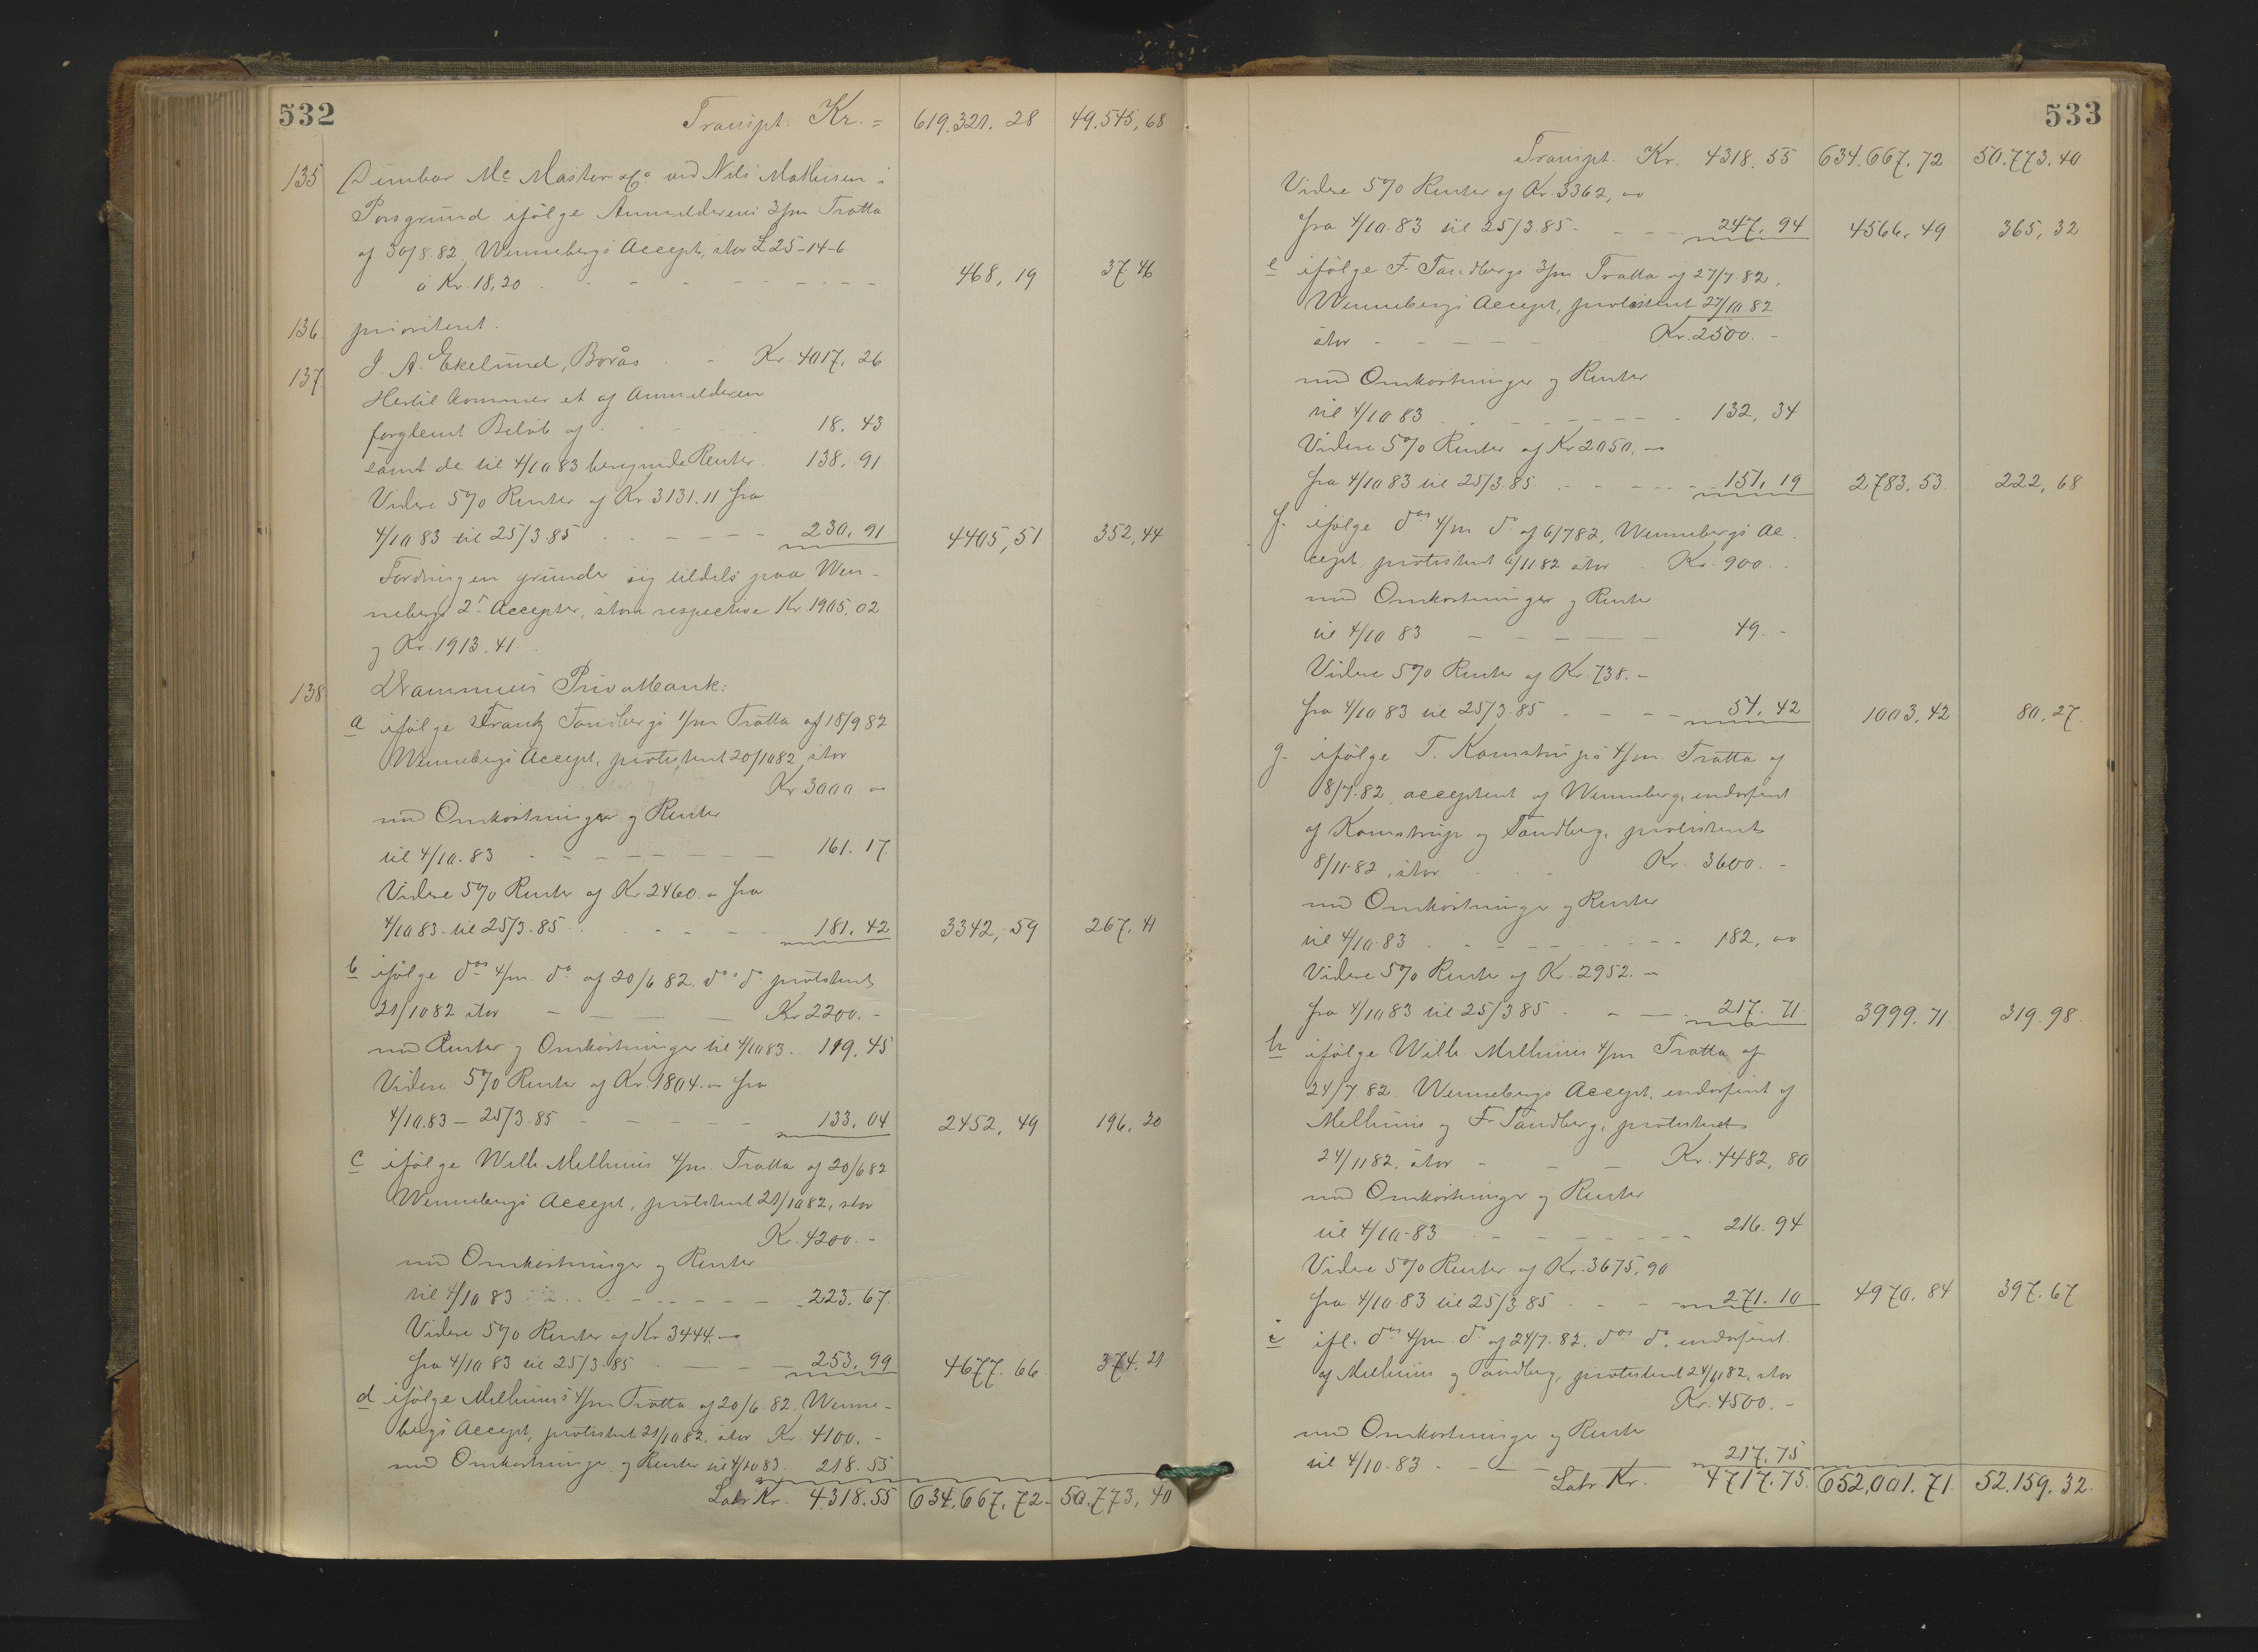 532
Transpt. Kr. = 619.321. 28 49.545,68
135 Dunbar Mc Master & Co ved Nils Mathisen i
Porsgrund ifølge Anmelderens 3/m Tratta
af 30/8.82, Wennebergs Accept, stor £ 25-14-6
à Kr. 18,20 . . - - - - - - - 468,19 37.46
136 prioriteret.
137. J. A. Ekelund, Borås . - Kr. 4017. 26
Hertil kommer et af Anmelderen
forglemt Beløb af . . - - - 18. 43
samt de til 4/10 83 beregnede Renter. 138. 91
Videre 5% Renter af Kr. 3131.11 fra
4/10 83 til 25/3.85 . . - - - - - 230. 91 4405,51 352,44
Fordringen grunder sig tildels paa Wen-
nebergs 2de Accepter, store respective Kr 1905.02
og Kr. 1913.41.
138. Drammens Privatbank:
a ifølge Frantz Tandbergs 1/m Tratta af 18/9 82
Wennebergs Accept, protesteret 20/10 82, stor
Kr 3000. 00
med Omkostninger og Renter
til 4/10.83 - - - - - - - - 161. 17.
Videre 5% Renter af Kr. 2460. 00 fra
4/10 83 til 25/3.85 . . - - - - 181. 42 3342,59 267.41
b ifølge dos 4/m. do af 20/6 82. dos do protesteret
21/10 82 stor - - - - Kr 2200. -
med Renter og Omkostninger til 4/10 83. . 119. 45
Videre 5% Renter af Kr. 1804. 00 fra
4/10.83 - 25/3.85 - - - - - 133. 04 2452, 49 196. 20
c ifølge Wilh. Melhuus 4/m. Tratta af 20/6 82
Wennebergs Accept, protesteret 21/10 82, stor
Kr. 4200. -
med Omkostninger og Renter
til 4/10 83 . . . - - - - - - 223. 67.
Videre 5% Renter af Kr 3444. 00
fra 4/10 83 til 25/3.85 . - - - 253. 99 4677. 66 374. 21
d ifølge Melhuus' 4/m Tratta af 20/6. 82, Wenne-
bergs Accept, protesteret 21/10 82, stor Kr. 4100. -
med Omkostninger og Renter til 4/10 83. 218. 55
Latr Kr. 4318.55 634.667. 72 - 50.773, 40
533
Transpt. Kr. 4318. 55 634.667. 72 50.773. 40
Videre 5% Renter af Kr. 3362, 00
fra 4/10 83 til 25/3.85 - - - - 247. 94 4566. 49 365, 32
e ifølge F. Tandbergs 3/m. Tratta af 27/7. 82,
Wennebergs Accept, protesteret 27/10.82
stor - - - - - Kr. 2500. -
med Omkostninger og Renter
til 4/10 83 . . - - - - - - 132, 34
Videre 5% Renter af Kr 2050, 00
fra 4/10 83 til 25/3.85 . - - - - - 151. 19 2783. 53 222, 68
f. ifølge dos 4/m do af 6/7 82, Wennebergs Ac-
cept, protesteret 6/11 82 stor . Kr. 900. .
med Omkostninger og Renter
til 4/10 83 - - - - - - 49. -
Videre 5% Renter af Kr. 738. -
fra 4/10 83 til 25/3.85 - - - - 54. 42 1003. 42 80, 27.
g. ifølge T. Kamstrups 4/m. Tratta af
8/7. 82, accepteret af Wenneberg, endosseret
af Kamstrup og Tandberg, protesteret
8/11 82, stor . . - Kr. 3600. -
med Omkostninger og Renter
til 4/10 83 . - - - - - - - 182, 00
Videre 5% Renter af Kr. 2952. 00
fra 4/10 83 til 25/3 85 . - - - 217. 71 3999. 71 319. 98.
h ifølge Wilh. Melhuus 4/m Tratta af
24/7 82. Wennebergs Accept, endosseret af
Melhuus og F. Tandberg, protesteret
24/11 82, stor - - - Kr. 4482, 80
med Omkostninger og Renter
til 4/10-83 . - - - - - - 216. 94
Videre 5% Renter af Kr. 3675,90
fra 4/10.83 til 25/3 85 . - - - 271. 10 4970. 84 397. 67
i ifl. dos 4/m. do af 24/7. 82. dos do, endosseret
af Melhuus og Tandberg, protesteret 24/11 82, stor
Kr. 4500. -
med Omkostninger og Renter
til 4/10. 83 . - - - 217. 75
Latr Kr. 4717.75. 652,001. 71. 52.159. 32.